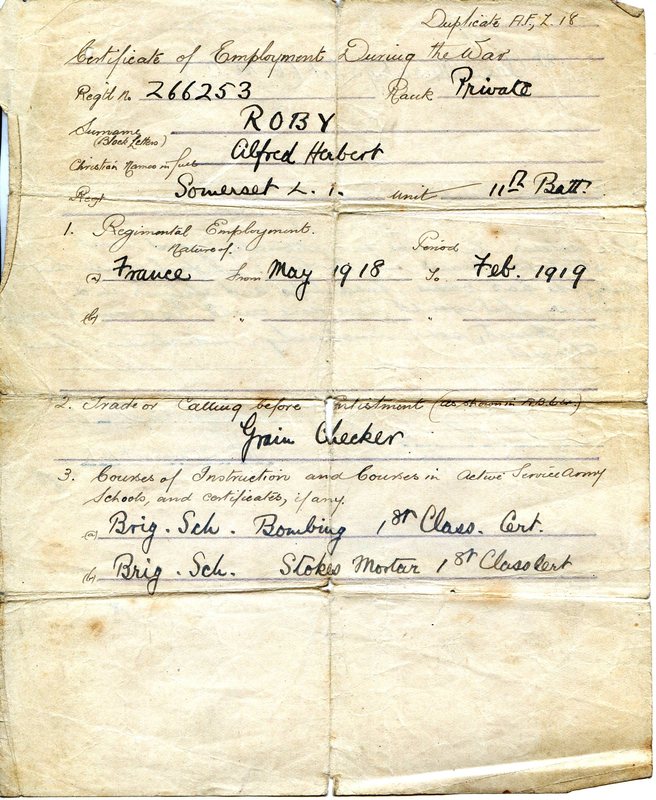 Duplicate A.F., Z. 18
Certificate of Employment During the War
Reg'd No 266253 Rank Private
Surname ROBY
(Block Letters)
Christian Names in full Alfred Herbert
Regt Somerset L. I. Unit 11th Batt.
1. Regimental Employment.
Nature of. Period
(a) France from May 1918 To Feb. 1919
(b) " "
2. Trade or Calling before Enlistment (as shown in A.B.64)
Grain Checker
3. Courses of Instruction and Courses in Active Service Army
Schools, and certificates, if any.
(a) Brig. Sch. Bombing 1st Class. Cert.
(b) Brig. Sch. Stokes Mortar 1st Class Cert